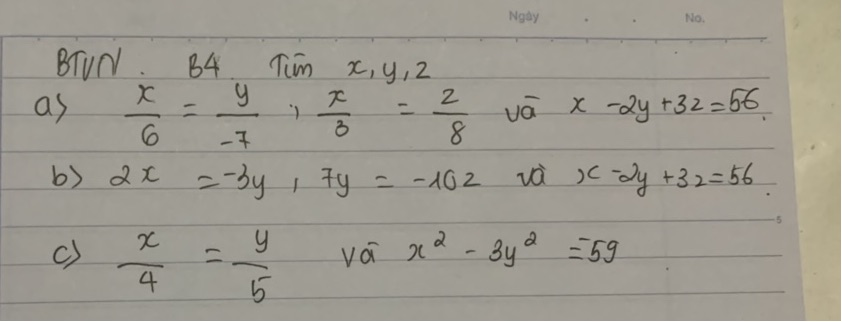 Ngày . . No.
BTVN. B4 Tìm x, y, z
a) x/6 = y/-7 ; x/3 = z/8 và x - 2y + 3z = 56.
b) 2x = -3y, 7y = -10z và x - 2y + 3z = 56.
c) x/4 = y/5 và x² - 3y² = -59